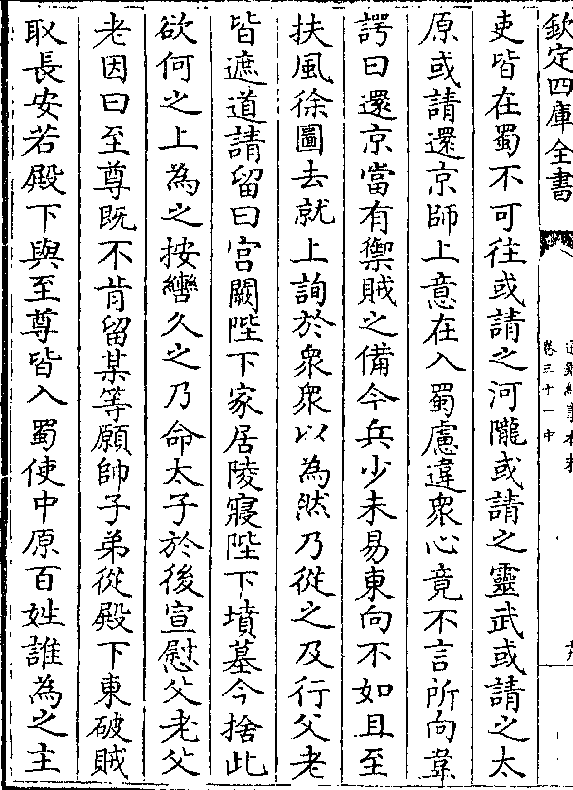 欽定四庫全書
卷三十一中
吏皆在蜀不可往或請之河隴或請之靈武或請之太
原或請還京師上意在入蜀慮違衆心竟不言所向韋
諤曰還京當有禦賊之備今兵少未易東向不如且至
扶風徐圖去就上詢於衆衆以為然乃從之及行父老
皆遮道請留曰宫闕陛下家居陵寢陛下墳墓今捨此
欲何之上為之按轡久之乃命太子於後宣慰父老父
老因曰至尊既不肯留某等願帥子弟從殿下東破賊
取長安若殿下與至尊皆入蜀使中原百姓誰為之主